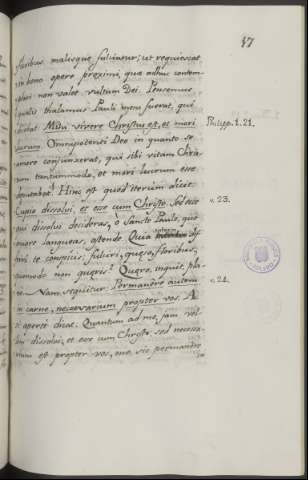 47
floribus, malisque fulcimur; ut requiescat
in bono opere proximi, quæ adhuc contem-
plari non valet vultum Dei. Pensemus
qualis thalamus Pauli mens fuerat, qui
dicebat Mihi vivere Christus est, et mori
Philipp. 1. 21.
lucrum. Omnipotenti Deo in quanto se
amore conjunxerat, qui sibi vitam Chris-
tum tantummodo, et mori lucrum esse
deputabat! Hinc est quod iterum dicit
Cupio dissolvi, et esse cum Christo. Sed ecce
v. 23.
qui dissolvi desideras, ô Sancte Paule, quo
amore langueas, ostende. Quia
te conspicis; fulciri, quæso, floribus,
quomodo non quæris? Quæro, inquit, pla-
ne. Nam sequitur Permanere autem
v. 24.
in carne, necessarium propter vos. A
si aperte dicat. Quantum ad me, jam vol-
o dissolvi, et esse cum Christo, sed necessa-
rium est propter vos, me, sic permanere
in